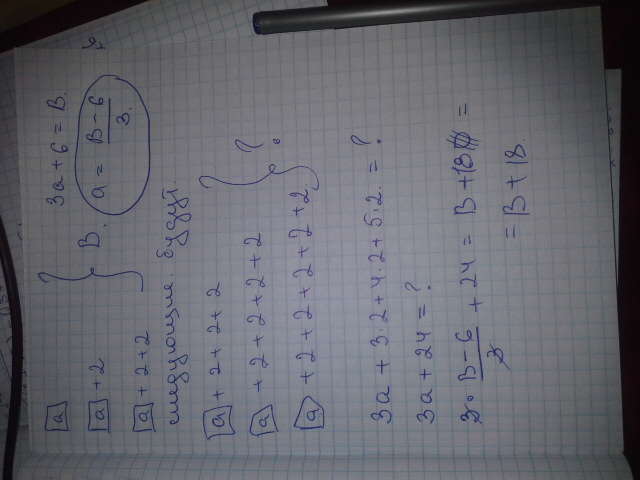 a
a + 2
a + 2 + 2
} B.
3a + 6 = B.
a = B - 6 / 3.
следующие. будут.
a + 2 + 2 + 2
a + 2 + 2 + 2 + 2
a + 2 + 2 + 2 + 2 + 2
} ?
3a + 3·2 + 4·2 + 5·2. = ?
3a + 24 = ?
3 · B - 6 / 3 + 24 = B + 18 =
= B + 18.